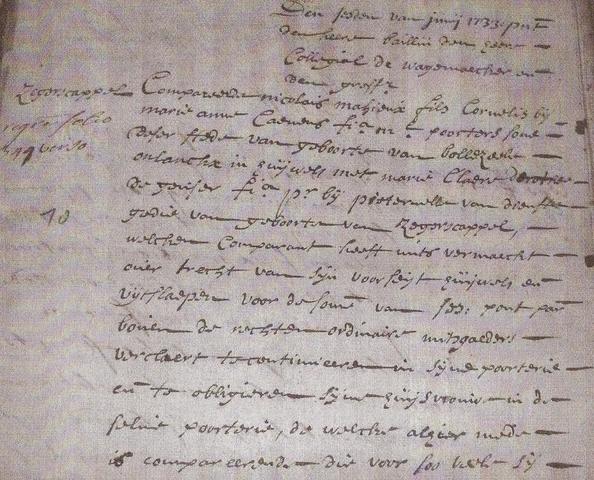 Den sesden van junij 1733 pnt
den heere bailliu den heere
Collegial de wagemaecker en
den greffr
Zegerscappel
regre folio
449 verso
10
Compareerde nicolais mahieux fils Cornelis bij
marie anne Caemens fa mt poorters sone
deser stede van geboorte van bollezeele
onlancx in huijwel met marie Claere
de geuser fa pr bij pieternelle van
gedie van geboorte van Zegerscappel,
welcken Comparant heeft mits vermaeckt
over trecht van syn voorseyt huijwel en
vijtslaepen voor de some van ses: pont par
boven de rechten ordinaire mitsgaeders
verclaert te continueeren in syne poorterie
en te obligieren syne huijsvrouwe in de
selve poorterie, de welcke alhier mede
is compareerende die voor soo veele sy